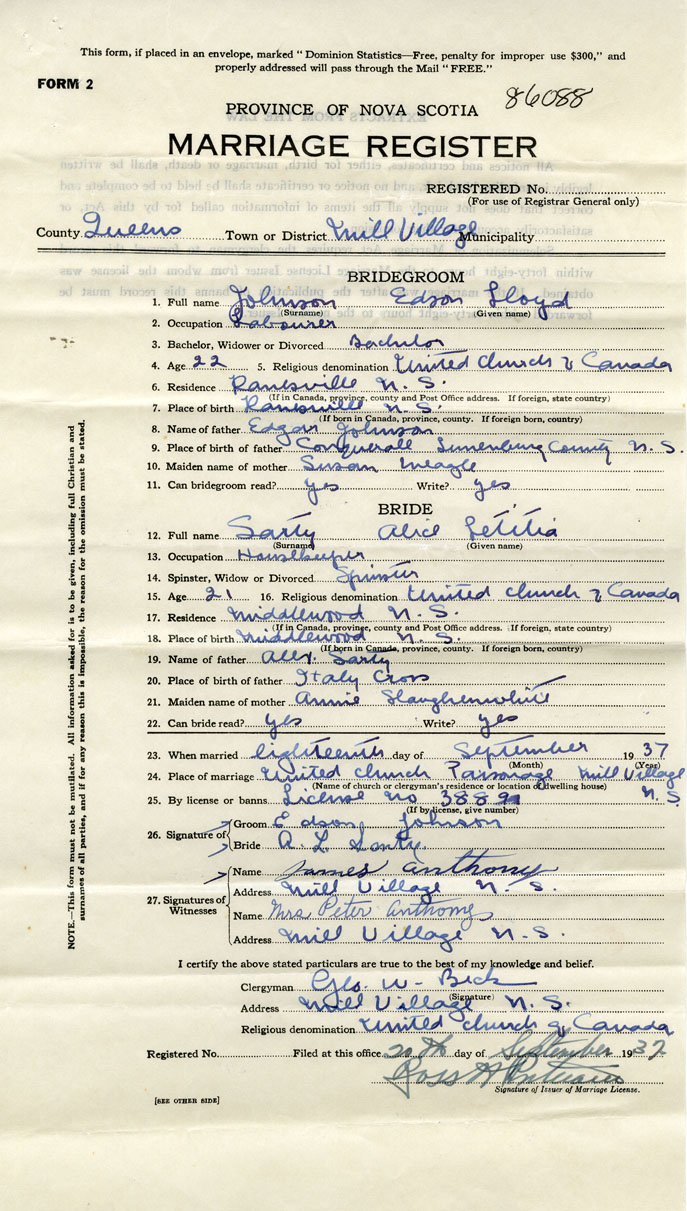 This form, if placed in an envelope, marked "Dominion Statistics—Free, penalty for improper use $300," and
properly addressed will pass through the Mail "FREE."
FORM 2
86088
PROVINCE OF NOVA SCOTIA
MARRIAGE REGISTER
REGISTERED No.
(For use of Registrar General only)
County Queens Town or District Mill Village Municipality
BRIDEGROOM
1. Full name Johnson Edson Lloyd
(Surname) (Given name)
2. Occupation Labourer
3. Bachelor, Widower or Divorced Bachelor
4. Age 22 5. Religious denomination United Church of Canada
6. Residence N. S.
(If in Canada, province, county and Post Office address. If foreign, state country)
7. Place of birth N. S.
(If born in Canada, province, county. If foreign born, country)
8. Name of father Edgar Johnson
9. Place of birth of father Conquerall Lunenburg County N. S.
10. Maiden name of mother Susan
11. Can bridegroom read? yes Write? yes
BRIDE
12. Full name Sarty Alice Letitia
(Surname) (Given name)
13. Occupation Housekeeper
14. Spinster, Widow or Divorced Spinster
15. Age 21 16. Religious denomination United Church of Canada
17. Residence Middlewood N. S.
(If in Canada, province, county and Post Office address. If foreign, state country)
18. Place of birth Middlewood N. S.
(If born in Canada, province, county. If foreign born, country)
19. Name of father Alex. Sarty
20. Place of birth of father Italy Cross
21. Maiden name of mother Annie Slaughenwhite
22. Can bride read? yes Write? yes
23. When married Eighteenth day of September 1937
(Month) (Year)
24. Place of marriage United Church Parsonage Mill Village N. S.
(Name of church or clergyman's residence or location of dwelling house)
25. By license or banns License no
(If by license, give number)
26. Signature of
Groom Edson Johnson
Bride A. L. Sarty
27. Signatures of Witnesses
Name James Anthony
Address Mill Village N. S.
Name Mrs Peter Anthony
Address Mill Village N. S.
I certify the above stated particulars are true to the best of my knowledge and belief.
Clergyman Geo. W. Beck
(Signature)
Address Mill Village N. S.
Religious denomination United Church of Canada
Registered No. Filed at this office 20th day of September 1937
Signature of Issuer of Marriage License.
[SEE OTHER SIDE]
NOTE.—This form must not be mutilated. All information asked for is to be given, including full Christian and
surnames of all parties, and if for any reason this is impossible, the reason for the omission must be stated.